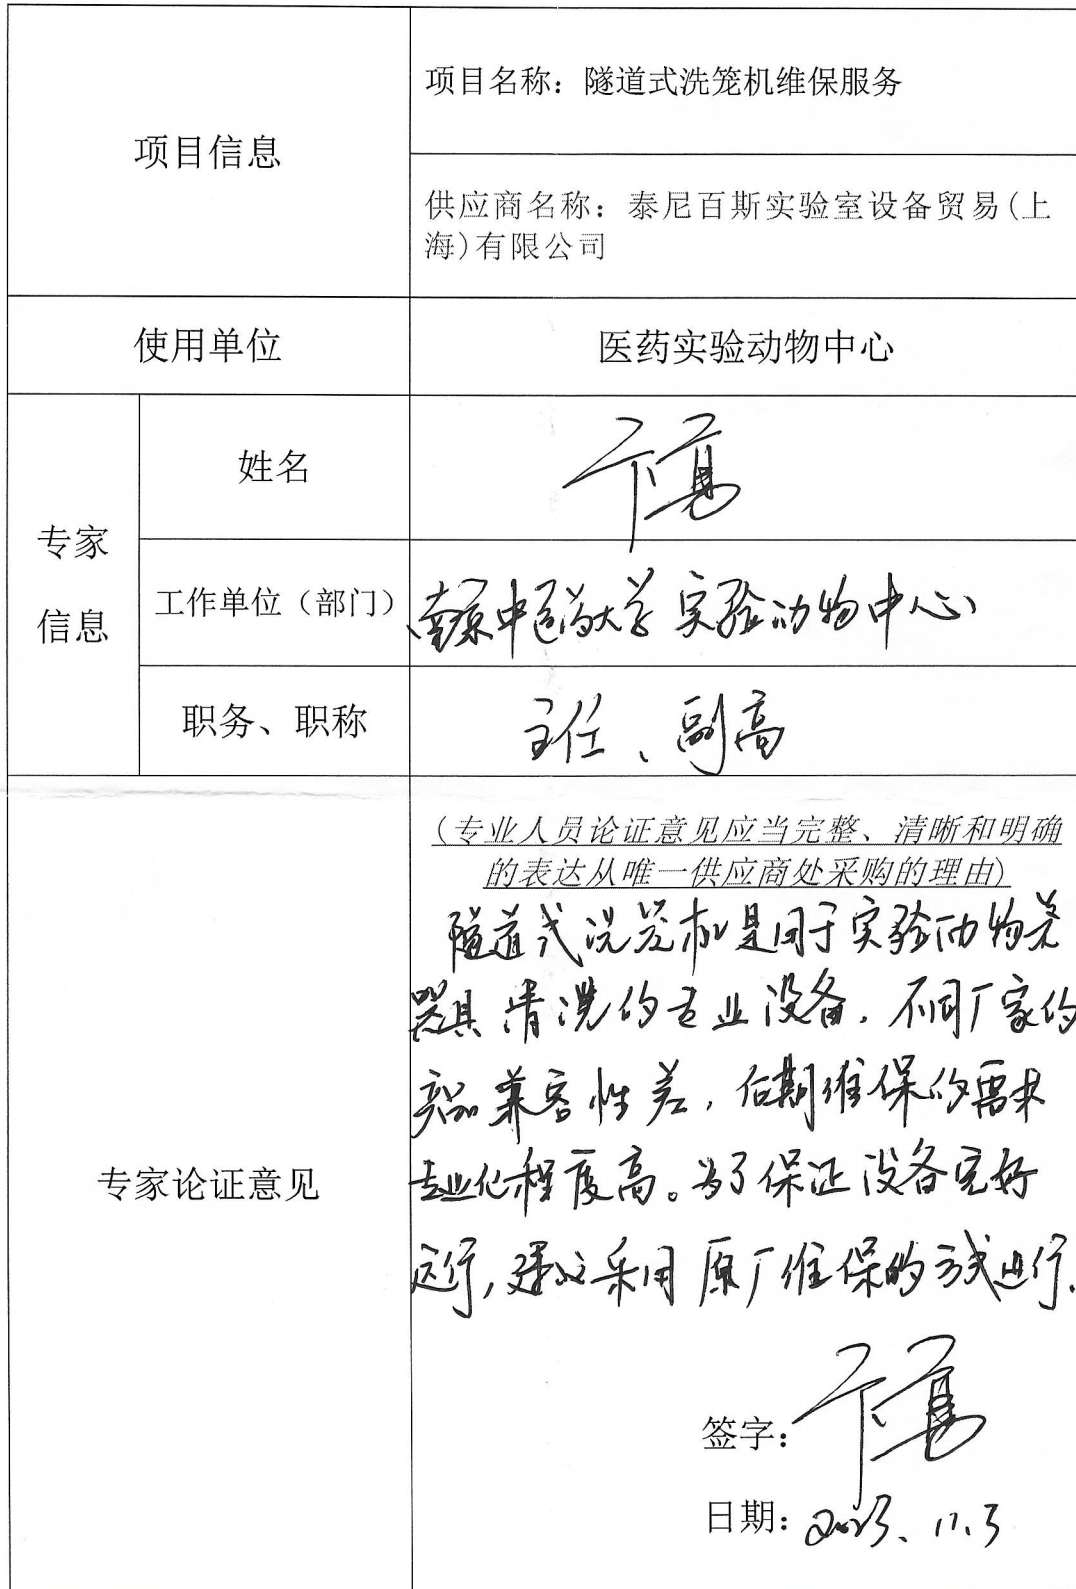 项目信息
项目名称：隧道式洗笼机维保服务
供应商名称：泰尼百斯实验室设备贸易(上
海)有限公司
使用单位
医药实验动物中心
专家
信息
姓名
卞勇
工作单位（部门）
南京中医药大学实验动物中心
职务、职称
主任、副高
专家论证意见
(专业人员论证意见应当完整、清晰和明确
的表达从唯一供应商处采购的理由)
隧道式洗笼机是用于实验动物笼
器具清洗的专业设备，不同厂家的
兼容性差，后期维保的需求
专业化程度高。为了保证设备完好
运行，建议采用原厂维保的方式进行.
签字：卞勇
日期：2023、11.3